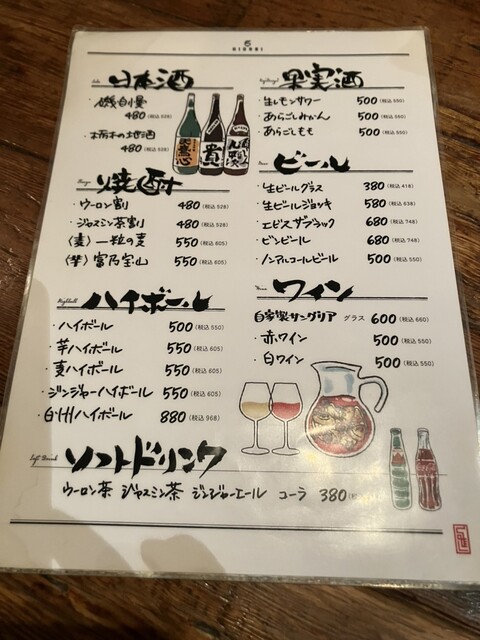 HIDORI
日本酒
・磯自慢
480(税込 528)
・栃木の地酒
480(税込 528)
焼酎
・ウーロン割 480(税込 528)
・ジャスミン茶割 480(税込 528)
〈麦〉一粒の麦 550(税込 605)
〈芋〉富乃宝山 550(税込 605)
Highball
ハイボール
・ハイボール 500(税込 550)
・芋ハイボール 550(税込 605)
・麦ハイボール 550(税込 605)
・ジンジャーハイボール 550(税込 605)
・白州ハイボール 880(税込 968)
果実酒
・生レモンサワー 500(税込 550)
・あらごしみかん 500(税込 550)
・あらごしもも 500(税込 550)
ビール
・生ビールグラス 380(税込 418)
・生ビールジョッキ 580(税込 638)
・エビスザブラック 680(税込 748)
・ビンビール 680(税込 748)
・ノンアルコールビール 500(税込 550)
ワイン
自家製サングリア グラス 600(税込 660)
・赤ワイン 500(税込 550)
・白ワイン 500(税込 550)
Soft Drink
ソフトドリンク
ウーロン茶 ジャスミン茶 ジンジャーエール コーラ 380